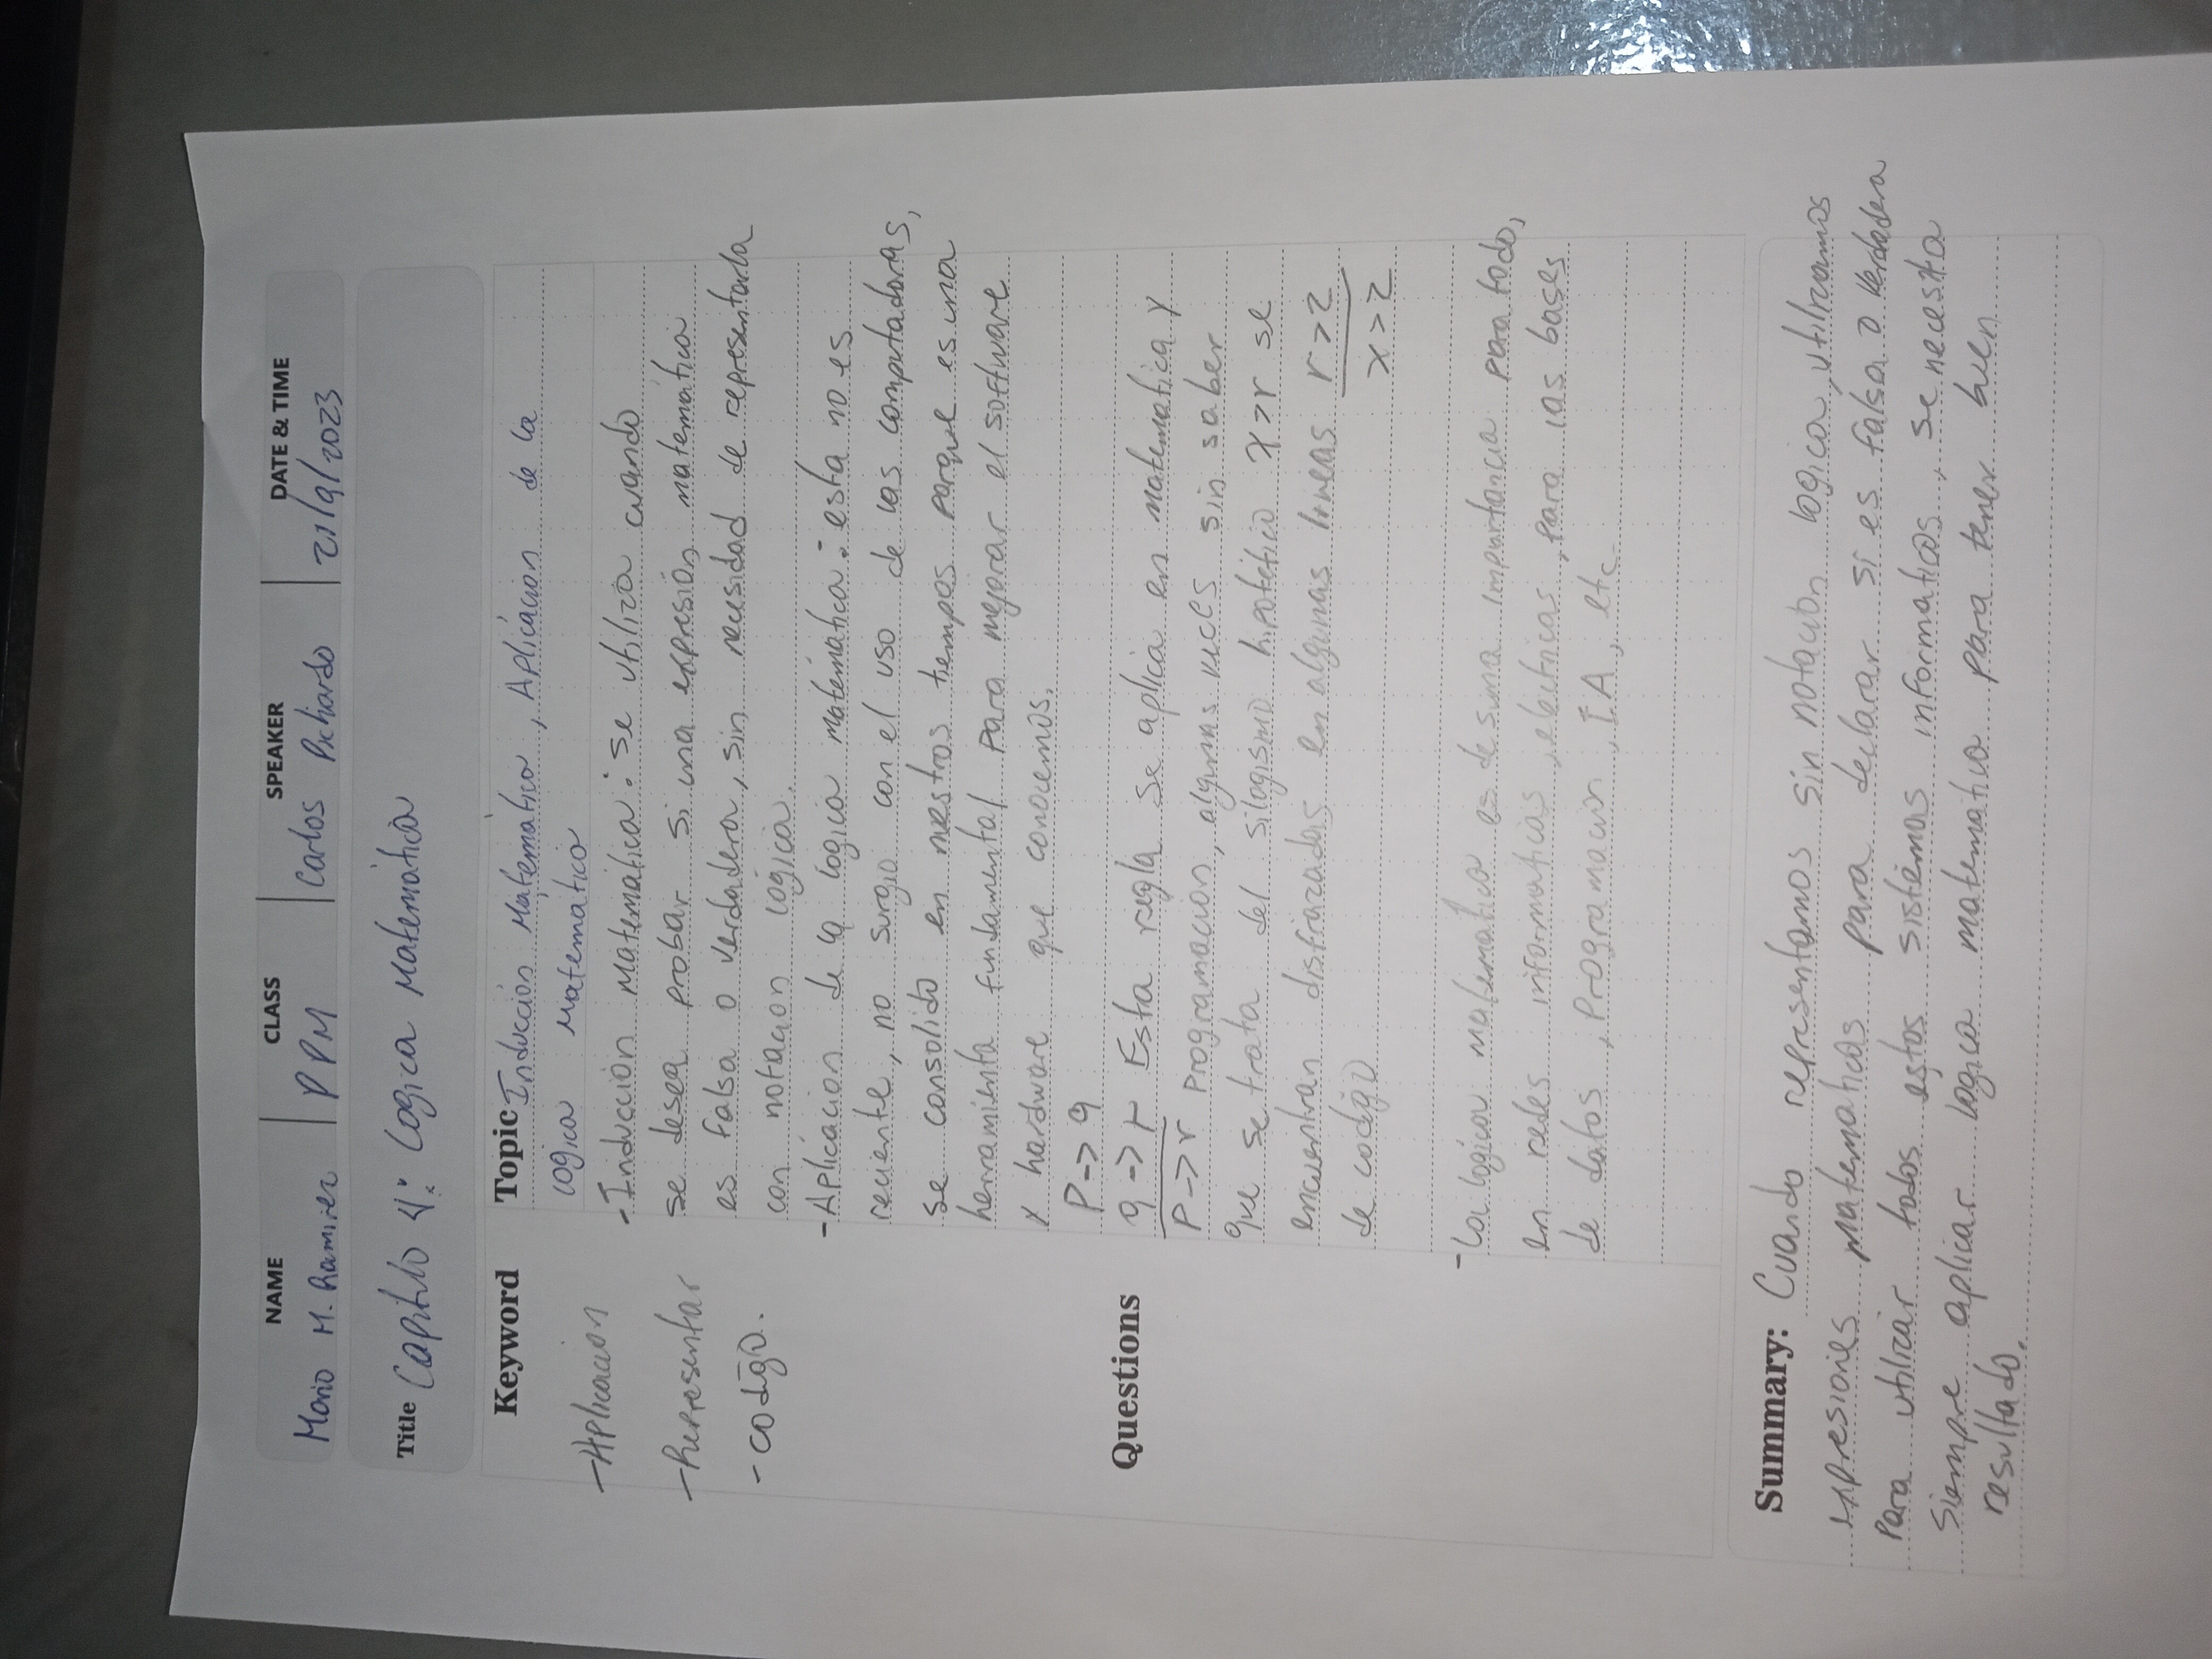 NAME CLASS SPEAKER DATE & TIME
Mario M. Ramirez PPM Carlos Pichardo 21/9/2023
Title Capitulo 4: Logica Matemática
Keyword
-Aplicación
-Representar
-codigo.
Topic Inducción Matemática, Aplicación de la
logica Matemática
-Inducción Matemática: se utiliza cuando
se desea probar si una expresión matemática
es falsa o verdadera, sin necesidad de representarla
con notación lógica.
-Aplicación de la logica matemática: esta no es
reciente, no surgio con el uso de las computadoras,
se consolido en nuestros tiempos porque es una
herramienta fundamental para mejorar el software
y hardware que conocemos.
P -> q
Questions
q -> r Esta regla se aplica en matematica y
P -> r programación, algunas veces sin saber
que se trata del silogismo hipotético x > r se
encuentran disfrazadas en algunas lineas r > z
de codigo x > z
-La logica matematica es de suma importancia para todo,
en redes informaticas, electricas, para las bases
de datos, programación, IA, etc.
Summary: Cuando representamos sin notación logica, utilizamos
expresiones matematicas para declarar si es falsa o verdadera
para utilizar todos estos sistemas informaticos, se necesita
siempre aplicar logica matematica para tener buen
resultado.